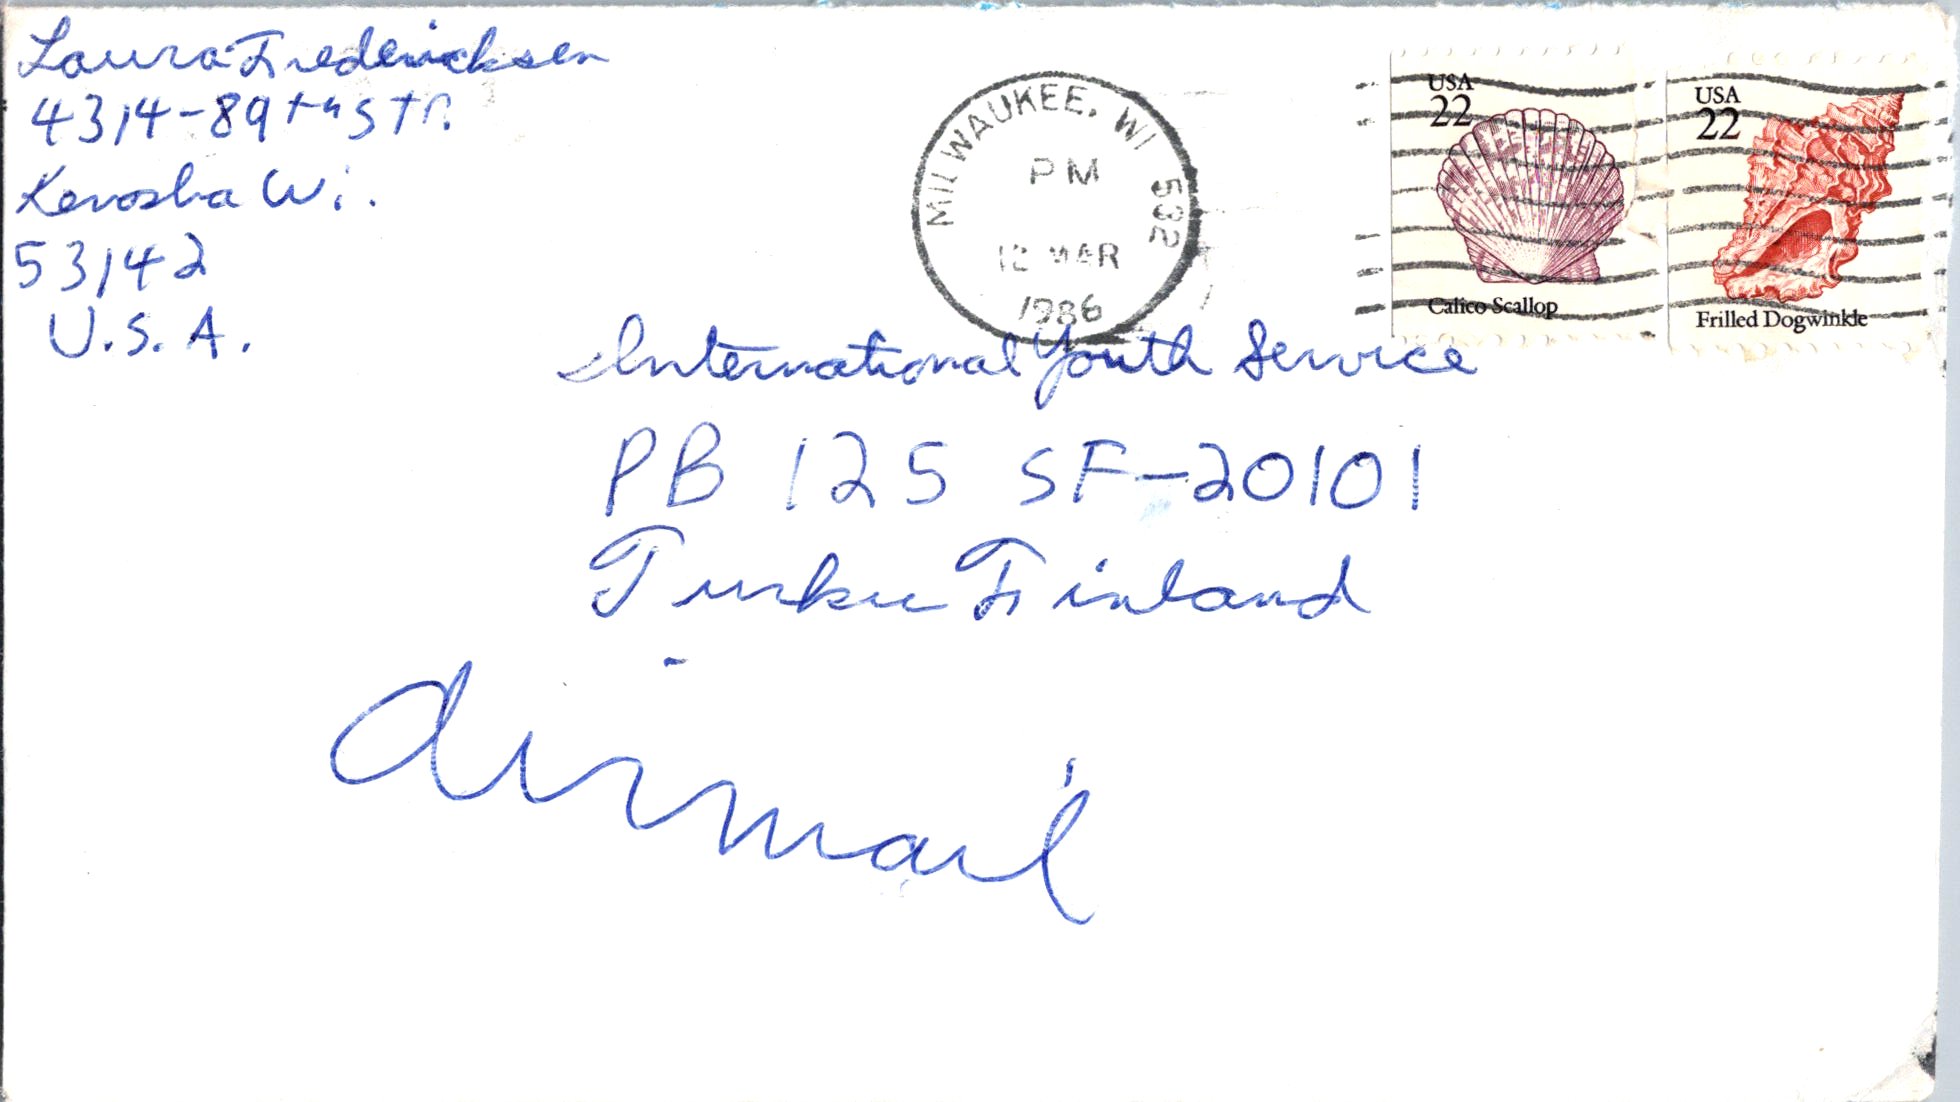 Laura Fredericksen
4314-89th str.
Kenosha Wi.
53142
U.S.A.
MILWAUKEE, WI 532
PM
12 MAR
1986
USA
22
Calico Scallop
USA
22
Frilled Dogwinkle
International Youth Service
PB 125 SF-20101
Turku Finland
airmail